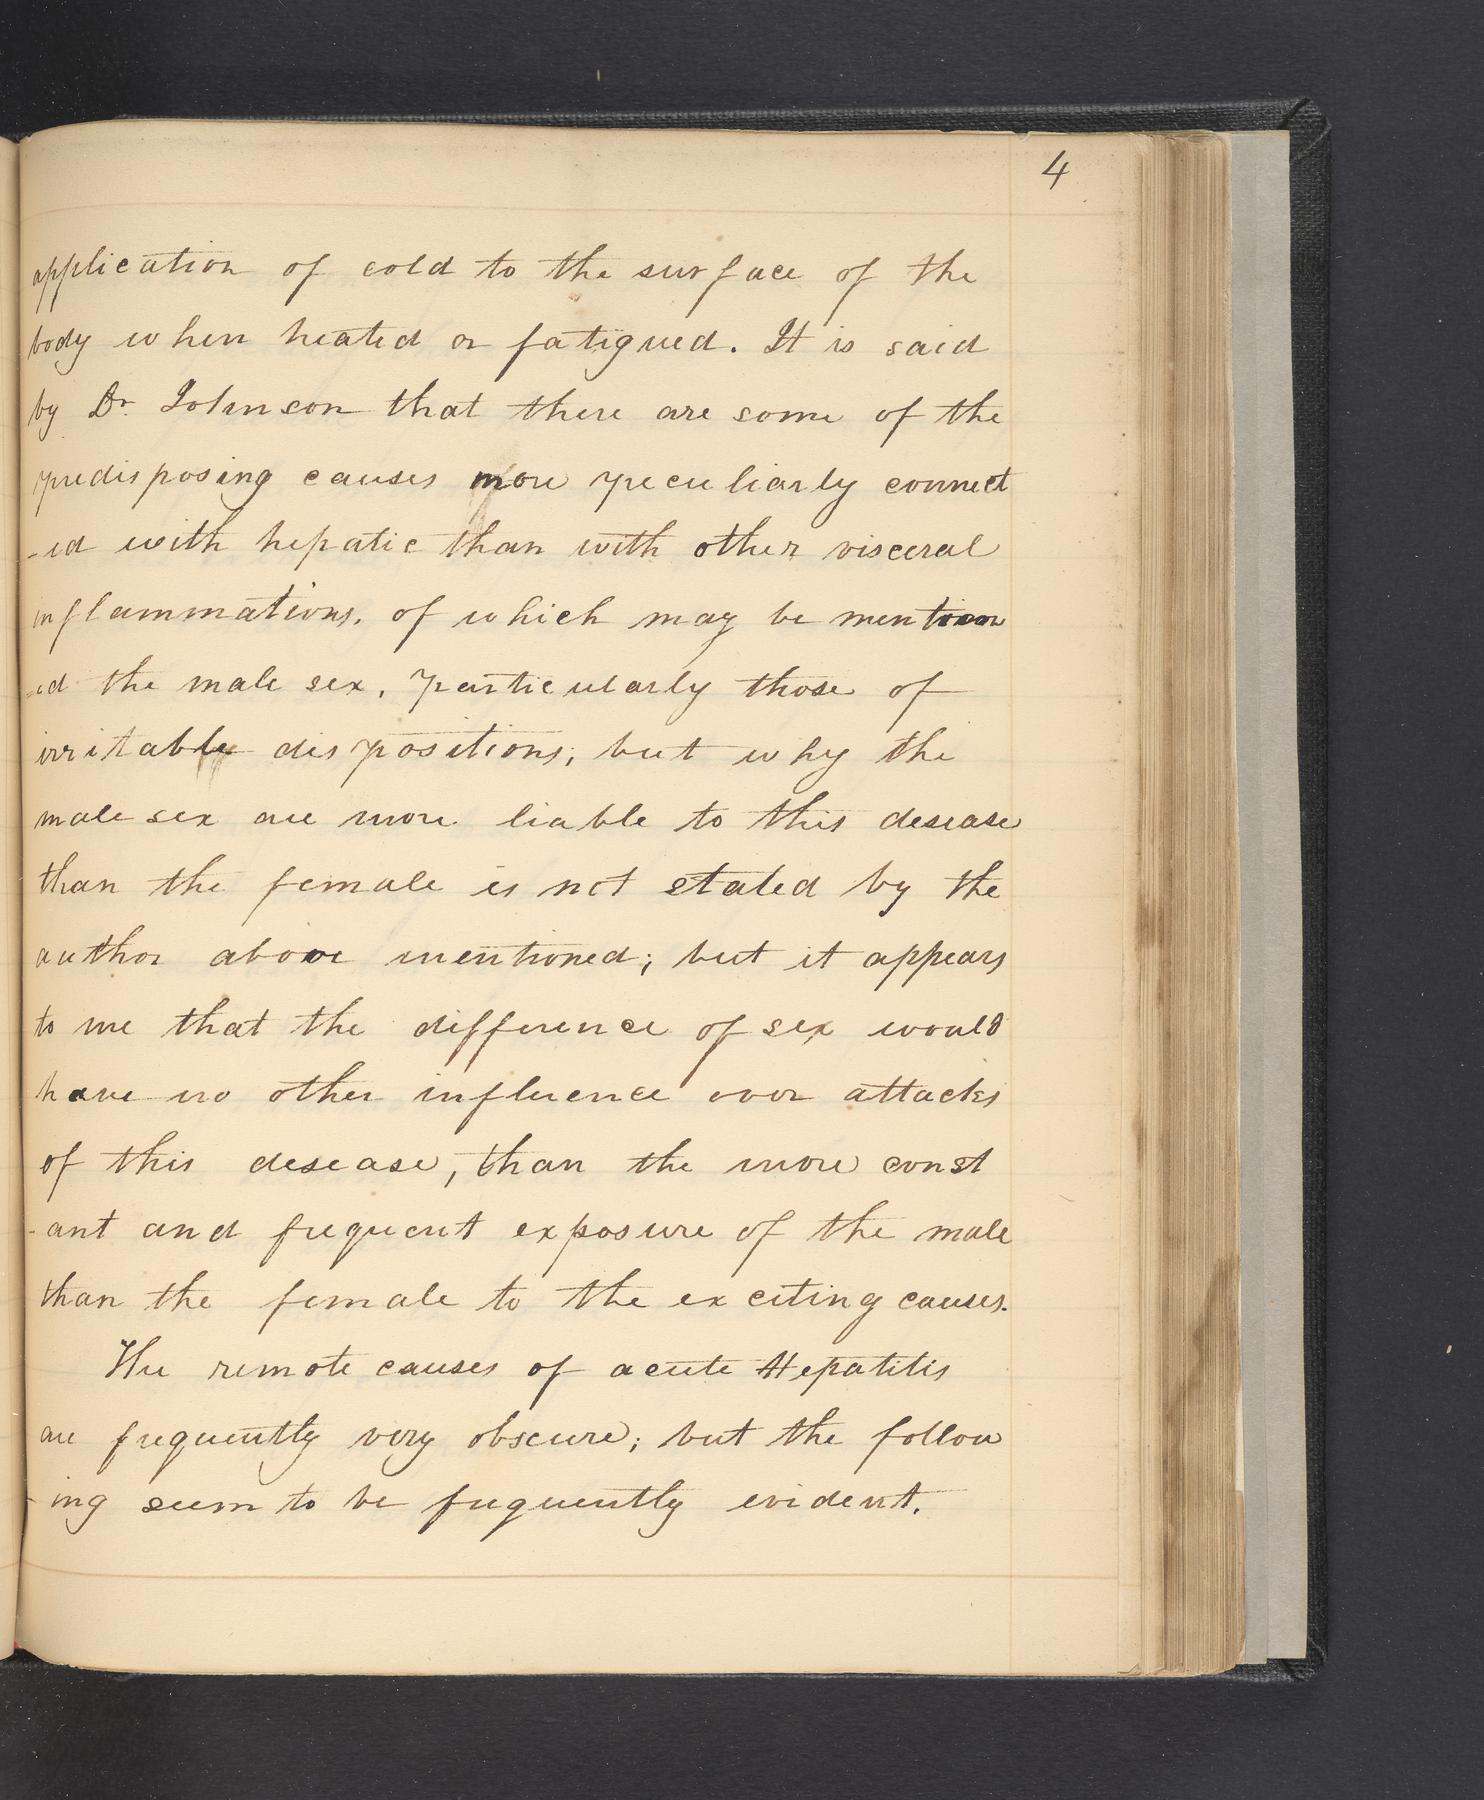 4
application of cold to the surface of the
body when heated or fatigued. It is said
by Dr. Johnson that there are some of the
predisposing causes more peculiarly connect
-ed with hepatic than with other visceral
inflammations, of which may be mention
=ed the male sex, particularly those of
irritable dispositions; but why the
male sex are more liable to this desease
than the female is not stated by the
author above mentioned; but it appears
to me that the difference of sex would
have no other influence over attacks
of this desease, than the more const
-ant and frequent exposure of the male
than the female to the exciting causes.
The remote causes of acute Hepatitis
are frequently very obscure; but the follow
-ing seem to be frequently evident.